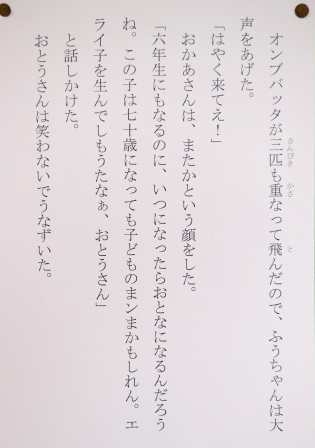 オンブバッタが三匹も重なって飛んだので、ふうちゃんは大
声をあげた。
「はやく来てえ！」
おかあさんは、またかという顔をした。
「六年生にもなるのに、いつになったらおとなになるんだろう
ね。この子は七十歳になっても子どものマンまかもしれん。エ
ライ子を生んでしもうたなぁ、おとうさん」
と話しかけた。
おとうさんは笑わないでうなずいた。
さんびき
かさ
と